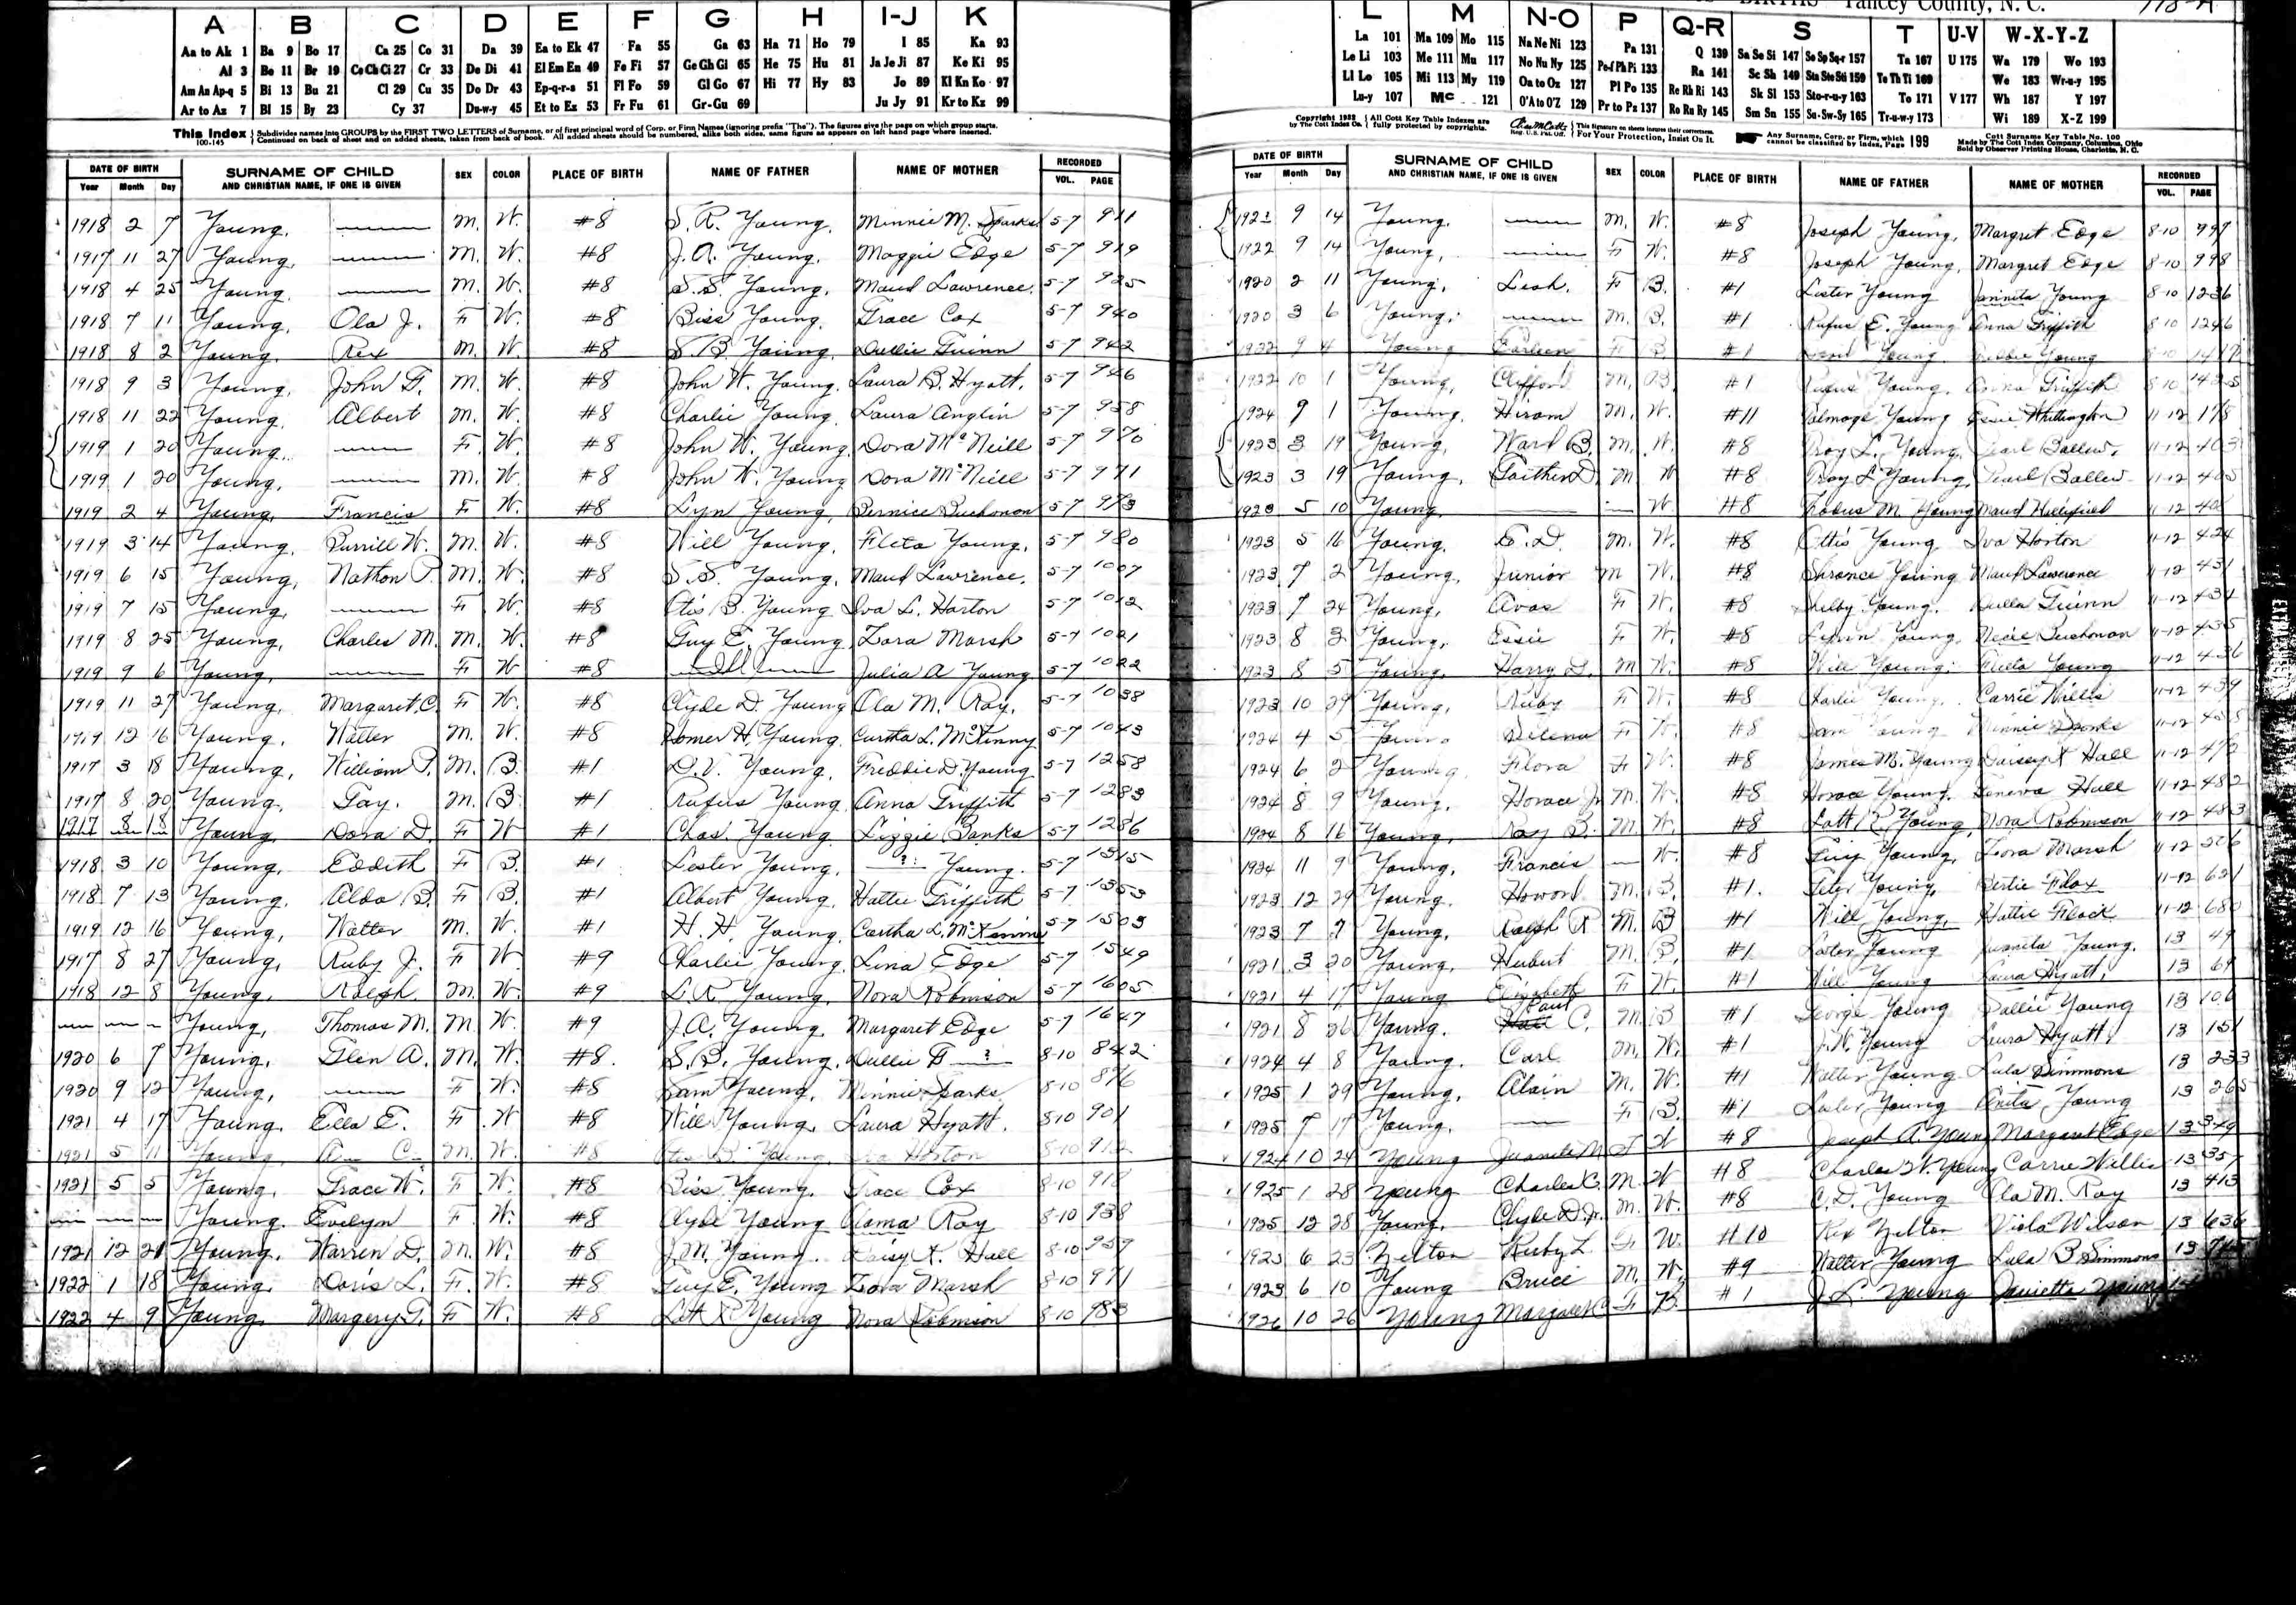 A B C D E F G H I-J K
Aa to Ak 1 Ba 9 Bo 17 Ca 25 Co 31 Da 39 Ea to Ek 47 Fa 55 Ga 63 Ha 71 Ho 79 I 85 Ka 93
Al 3 Be 11 Br 19 Ce Ch Ci 27 Cr 33 De Di 41 El Em En 49 Fe Fi 57 Ge Gh Gi 65 He 75 Hu 81 Ja Je Ji 87 Ke Ki 95
Am An Ap-q 5 Bi 13 Bu 21 Cl 29 Cu 35 Do Dr 43 Ep-q-r-s 51 Fl Fo 59 Gl Go 67 Hi 77 Hy 83 Jo 89 Kl Kn Ko 97
Ar to Az 7 Bl 15 By 23 Cy 37 Du-w-y 45 Et to Ez 53 Fr Fu 61 Gr-Gu 69 Ju Jy 91 Kr to Kz 99
This Index 100-145 Subdivides names into GROUPS by the FIRST TWO LETTERS of Surname, or of first principal word of Corp. or Firm Names (ignoring prefix "The"). The figures give the page on which group starts.
Continued on back of sheet and on added sheets, taken from back of book. All added sheets should be numbered, alike both sides, same figure as appears on left hand page where inserted.
DATE OF BIRTH SURNAME OF CHILD AND CHRISTIAN NAME, IF ONE IS GIVEN SEX COLOR PLACE OF BIRTH NAME OF FATHER NAME OF MOTHER RECORDED
Year Month Day VOL. PAGE
1918 2 7 Young, — M. W. #8 S. R. Young, Minnie M. Sparks 5-7 911
1917 11 27 Young, — M. W. #8 J. A. Young, Maggie Edge 5-7 919
1918 4 25 Young, — M. W. #8 S. S. Young, Maud Lawrence, 5-7 925
1918 7 11 Young, Ola J. F. W. #8 Biss Young, Grace Cox 5-7 940
1918 8 2 Young, Rex M. W. #8 S. B. Young, Dullie Guinn 5-7 942
1918 9 3 Young, John G. M. W. #8 John W. Young, Laura B. Hyatt, 5-7 946
1918 11 22 Young, Albert M. W. #8 Charlie Young, Laura Anglin 5-7 958
1919 1 20 Young, — F. W. #8 John W. Young, Dora McNeill 5-7 970
1919 1 20 Young, — M. W. #8 John W. Young Dora McNeill 5-7 971
1919 2 4 Young, Francis F. W. #8 Lyn Young, Bernice Buchanan 5-7 973
1919 3 14 Young, Burrill W. M. W. #8 Will Young, Fleta Young, 5-7 980
1919 6 15 Young, Nathan P. M. W. #8 S. S. Young, Maud Lawrence, 5-7 1007
1919 7 15 Young, — F. W. #8 Otis B. Young Iva L. Horton 5-7 1012
1919 8 25 Young, Charles M. M. W. #8 Guy E. Young Zora Marsh 5-7 1021
1919 9 6 Young, — F. W. #8 — Ill — Julia A Young 5-7 1022
1919 11 27 Young, Margaret C. F. W. #8 Clyde D. Young Ola M. Ray, 5-7 1038
1919 12 16 Young, Walter M. W. #8 Homer H. Young, Curtha L. McKinny 5-7 1043
1917 3 18 Young, William P. M. B. #1 D. V. Young, Freddie D. Young 5-7 1258
1917 8 20 Young, Gay. M. B. #1 Rufus Young Anna Griffith 5-7 1283
1917 8 18 Young, Dora D. F. W #1 Chas. Young Lizzie Banks 5-7 1286
1918 3 10 Young, Eddith F. B. #1 Lester Young, —?— Young. 5-7 1315
1918 7 13 Young, Alda B. F. B. #1 Albert Young, Hattie Griffith 5-7 1353
1919 12 16 Young, Walter M. W. #1 H. H. Young, Cartha L. McKinny 5-7 1503
1917 8 27 Young, Ruby J. F. W #9 Charlie Young, Lena Edge 5-7 1549
1918 12 8 Young, Ralph. M. W. #9 L. R. Young, Nora Robinson 5-7 1605
— — — Young, Thomas M. M. W. #9 J. A. Young, Margaret Edge 5-7 1647
1920 6 7 Young, Glen A. M. W. #8. S. B. Young, Dullie G—?— 8-10 842
1920 9 12 Young, — F. W. #8 Sam Young, Minnie Sparks 8-10 876
1921 4 17 Young, Ella E. F. W #8 Will Young, Laura Hyatt. 8-10 901
1921 5 11 Young, M. W. #8 Young, Horton 8-10
1921 5 5 Young, Grace W. F. W. #8 Biss Young. Grace Cox 8-10 918
— — — Young. Evelyn F. W. #8 Clyde Young Alama Ray 8-10 938
1921 12 21 Young, Warren D. M. W. #8 J. M. Young. Daisy K. Hall 8-10 957
1922 1 18 Young, Doris L. F. W. #8 Guy E. Young Zora Marsh 8-10 971
1922 4 9 Young, Margery G. F. W. #8 Lott R. Young Nora Robinson 8-10 983
BIRTHS Yancey County, N. C.
L M N-O P Q-R S T U-V W-X-Y-Z
La 101 Ma 109 Mo 115 Na Ne Ni 123 Pa 131 Q 139 Sa Se Si 147 So Sp Sq-r 157 Ta 167 U 175 Wa 179 Wo 193
Le Li 103 Me 111 Mu 117 No Nu Ny 125 Pe-f Ph Pi 133 Ra 141 Sc Sh 149 Sta Ste Sti 159 Te Th Ti 169 We 183 Wr-u-y 195
Ll Lo 105 Mi 113 My 119 Oa to Oz 127 Pl Po 135 Re Rh Ri 143 Sk Sl 153 Sto-r-u-y 163 To 171 V 177 Wh 187 Y 197
Lu-y 107 Mc 121 O'A to O'Z 129 Pr to Ps 137 Ro Ru Ry 145 Sm Sn 155 Su-Sw-Sy 165 Tr-u-w-y 173 Wi 189 X-Z 199
Copyright 1932 by The Cott Index Co. All Cott Key Table Indexes are fully protected by copyrights. Reg. U.S. Pat. Off. This signature on sheets insures their correctness. For Your Protection, Insist On It. Any Surname, Corp. or Firm, which cannot be classified by Index, Page 199
Cott Surname Key Table No. 100 Made by The Cott Index Company, Columbus, Ohio Sold by Observer Printing House, Charlotte, N. C.
DATE OF BIRTH SURNAME OF CHILD AND CHRISTIAN NAME, IF ONE IS GIVEN SEX COLOR PLACE OF BIRTH NAME OF FATHER NAME OF MOTHER RECORDED
Year Month Day VOL. PAGE
1921 9 14 Young, — M. W. #8 Joseph Young, Margret Edge 8-10 997
1922 9 14 Young, — F. W. #8 Joseph Young, Margret Edge 8-10 998
1920 2 11 Young, Leah. F. B. #1 Lister Young Jannita Young 8-10 1236
1920 3 6 Young, — M. B. #1 Rufus E. Young Anna Griffith 8-10 1246
1922 9 4 Young Earleen F. B. #1 Young, Young 8-10
1922 10 1 Young, Clifford M. B. #1 Rufus Young, Anna Griffith 8-10 1425
1924 9 1 Young, Hiram M. W. #11 Talmage Young Essie Whittington 11-12 178
1923 3 19 Young, Ward B. M. W. #8 Roy L. Young, Pearl Ballew, 11-12 403
1923 3 19 Young, Gaither D. M W #8 Roy L Young, Pearl Ballew 11-12 405
1923 5 10 Young — — W #8 M. Young Maud 11-12
1923 5 16 Young, E. D. M. W. #8 Ottis Young Iva Horton 11-12 424
1923 7 2 Young, Junior M W. #8 Young Maud Lawrence 11-12 431
1923 7 24 Young, Avas F. W. #8 Shelby Young. Dulla Guinn 11-12 434
1923 8 3 Young, Essie F. W. #8 Young, Necie Buchanan 11-12 435
1923 8 5 Young, Harry L. M W. #8 Will Young. Fleta Young 11-12 436
1923 10 29 Young, Ruby F. W. #8 Charlie Young, Carrie Willis 11-12 439
1924 4 5 Young Selena F. W. #8 Sam Young Minnie Sparks 11-12
1924 6 2 Young Flora F. W. #8 James M. Young Daisey K Hall 11-12 472
1924 8 9 Young, Horace Jr M. W. #8 Horace Young. Geneva Hall 11-12 482
1924 8 16 Young, Roy B. M. W. #8 Lott R Young, Nora Robinson 11-12 483
1924 11 9 Young, Francis — W. #8 Guy Young, Zora Marsh 11-12 506
1923 12 29 Young. Howard M. B. #1. Young, Bertie Flax 11-12 621
1923 7 7 Young, Ralph R M. B #1 Will Young, Hattie Flack 11-12 680
1921 3 20 Young, Hubert M. B. #1 Lester Young Juanita Young. 13 49
1921 4 17 Young Elizabeth F. W. #1 Will Young Laura Hyatt, 13 69
1921 8 26 Young. Paul C. M. B #1 George Young Dallie Young 13 106
1924 4 8 Young. Carl M. W. #1 J. W. Young Laura Hyatt, 13 151
1925 1 29 Young, Alain M. W. #1 Walter Young Lula Simmons 13 233
1925 7 17 Young. — F. B. #1 Lester Young Anita Young 13 265
1924 10 24 Young Juanita M. F W #8 Joseph A. Young Margaret Edge 13 349
1925 1 28 Young Charles C. M. W #8 Charles W. Young Carrie Willis 13 357
1925 12 28 Young, Clyde D. Jr. M. W. #8 C. D. Young Ola M. Ray 13 413
1925 6 23 Zelton Ruby L. F. W. #10 Rex Zelton Viola Wilson 13 636
1923 6 10 Young Bruce M. W. #9 Walter Young Lula B Simmons 13
1926 10 26 Young Margaret C. F. B. #1 J. L. Young Young